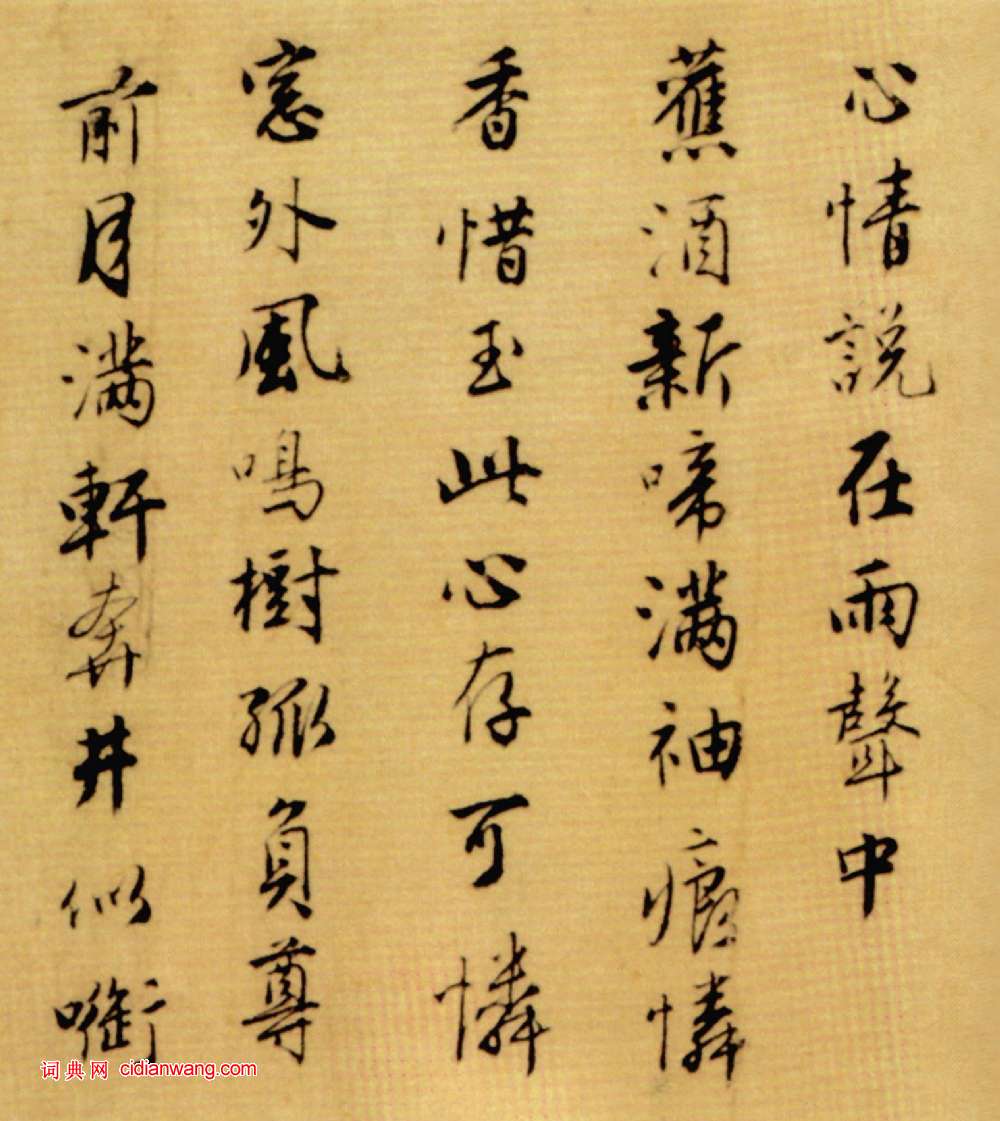 心情説在雨聲中
蕉酒新啼滿袖痕憐
香惜玉此心存可憐
窓外風鳴樹孤負尊
前月滿軒奔井似衡
词典网 cidianwang.com